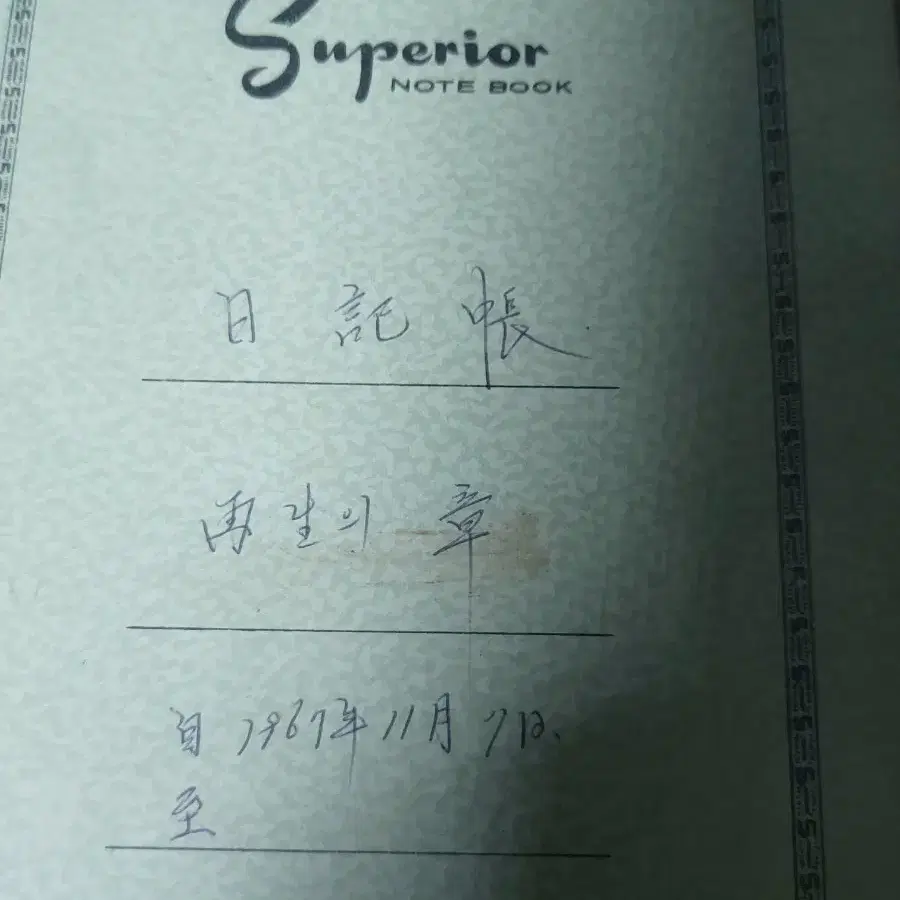 Superior
NOTE BOOK
日記帳.
再生의 章
自 1967年 11月 7日.
至